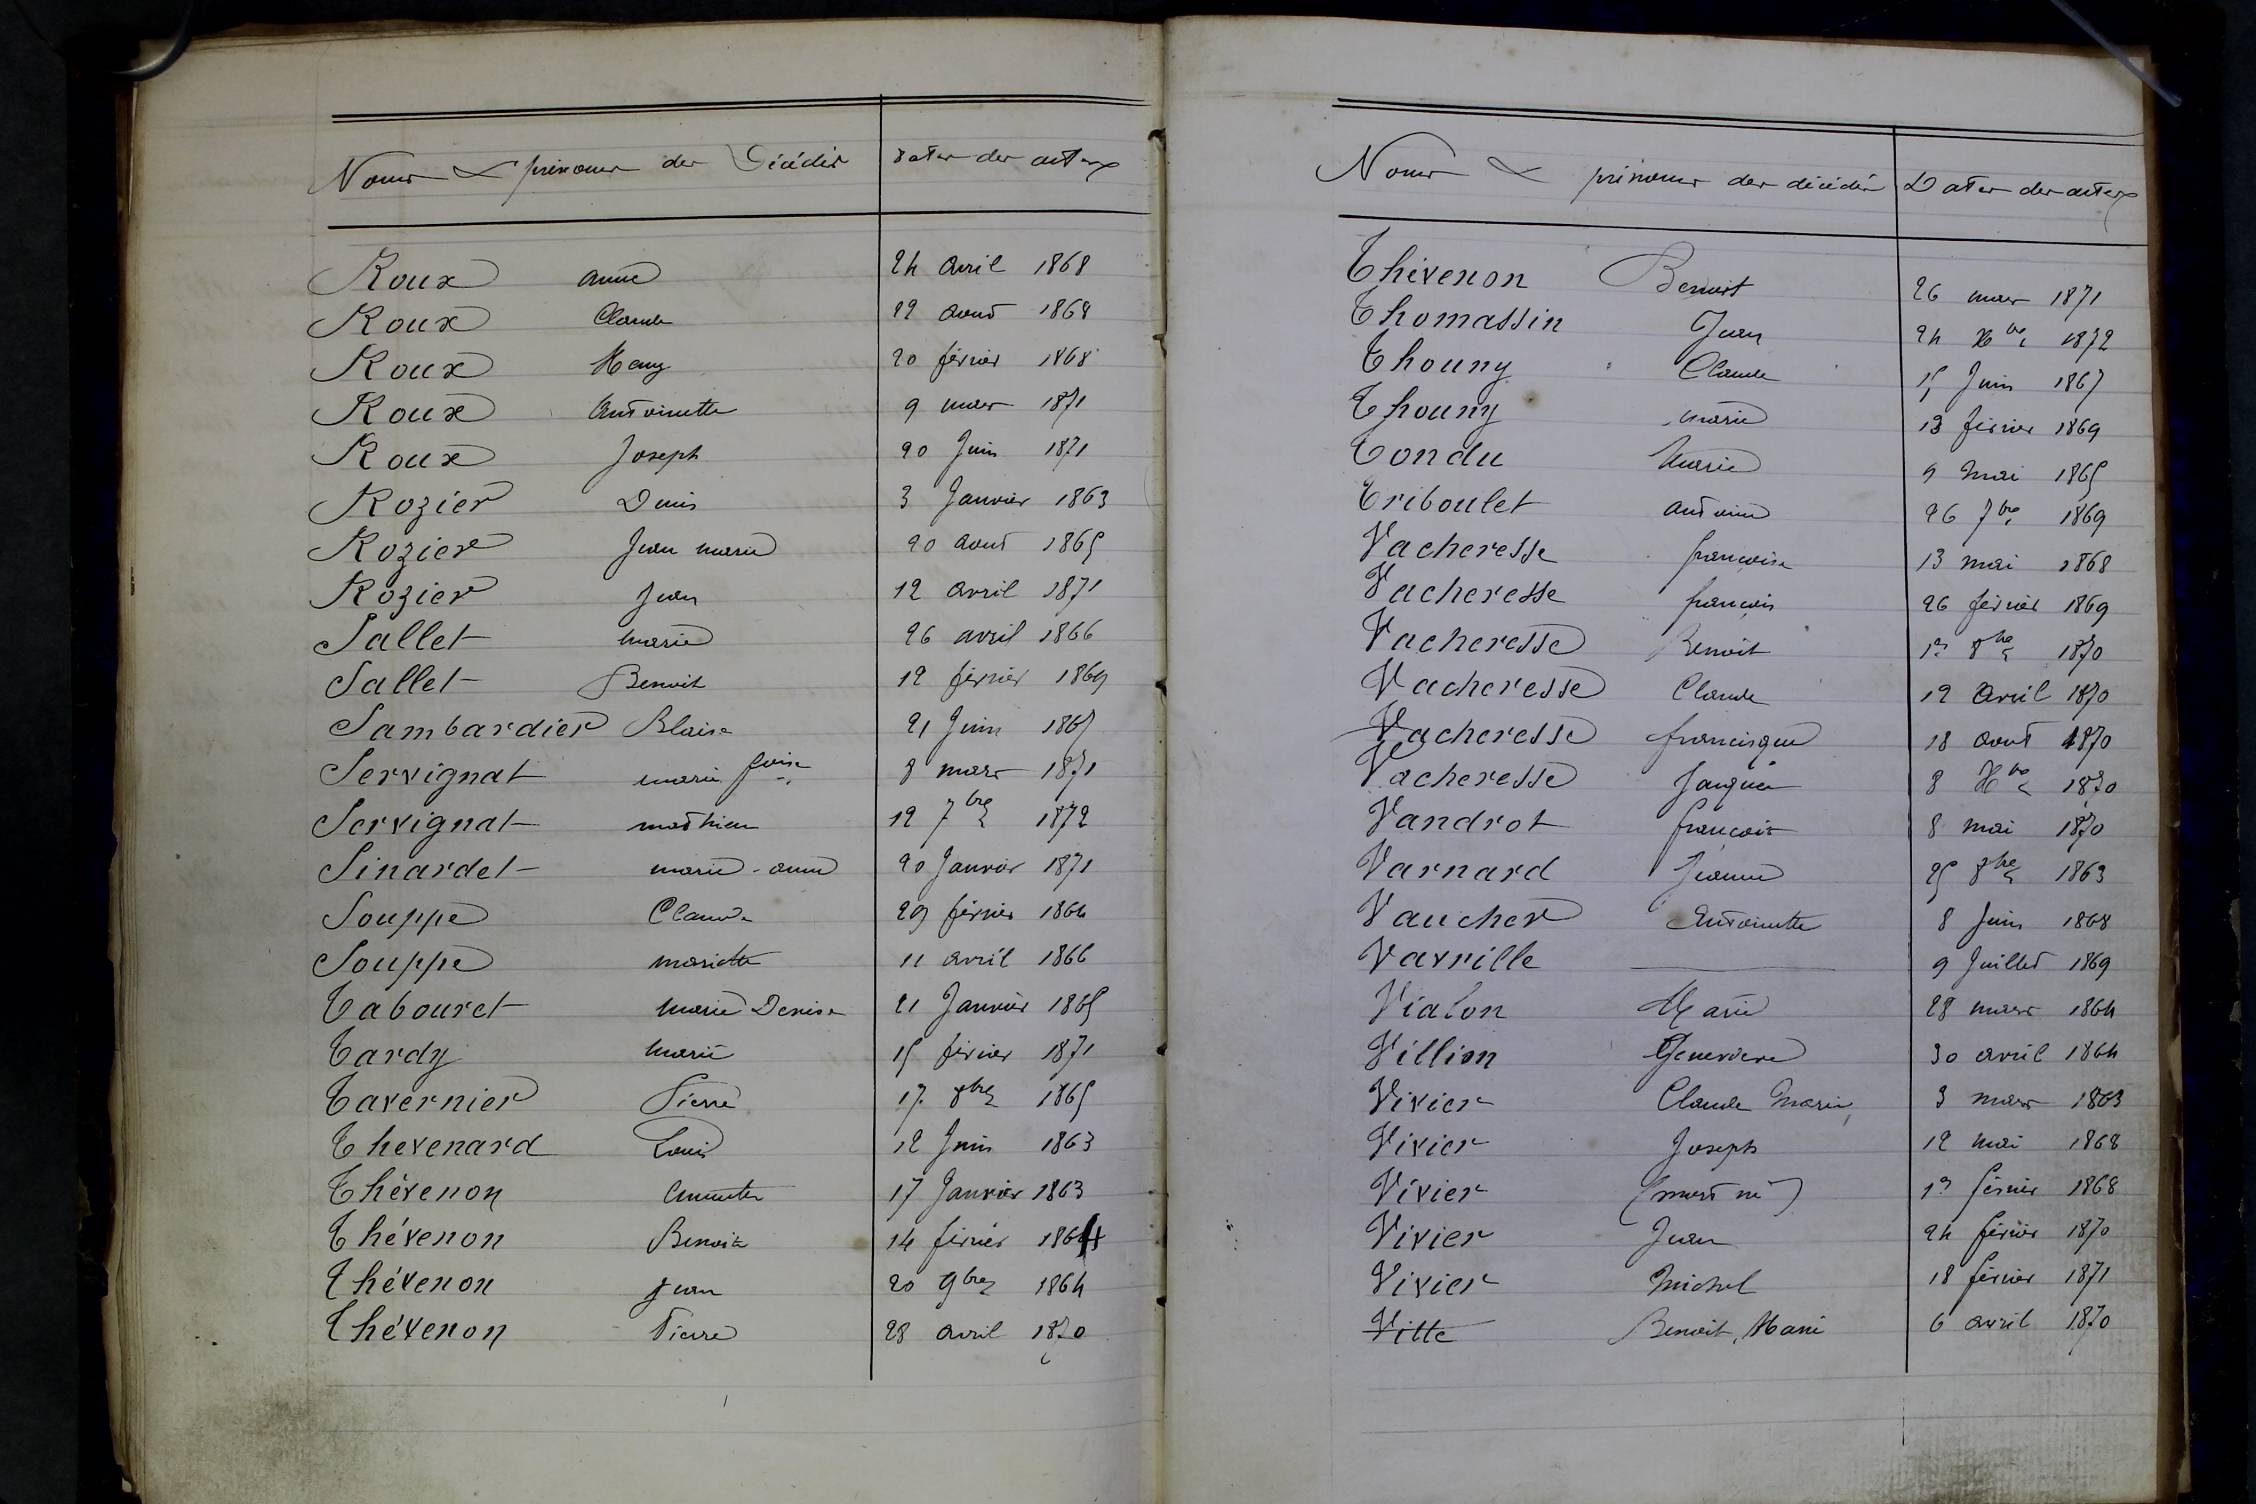 Noms & prénoms des Décédés dates des actes
Roux anne 24 avril 1868
Roux Claude 22 aout 1868
Roux Many 20 février 1868
Roux Antoinette 9 mars 1871
Roux Joseph 20 Juin 1871
Rozier Denis 3 Janvier 1863
Rozier Jean marie 20 aout 1865
Rozier Jean 12 avril 1871
Sallet marie 26 avril 1866
Sallet Benoit 12 février 1869
Sambardier Blaise 21 Juin 1865
Servignat marie foise 8 mars 1871
Servignat mathieu 12 7bre 1872
Sinardet marie-anne 20 Janvier 1871
Souppe Claude 29 février 1864
Souppe mariette 11 avril 1866
Tabouret Marie Denise 21 Janvier 1865
Tardy Marie 15 février 1871
Tavernier Pierre 17 8bre 1865
Thevenard Louis 12 Juin 1863
Thévenon 17 Janvier 1863
Thévenon Benoit 14 février 1864
Thévenon Jean 20 9bre 1864
Thévenon Pierre 28 avril 1870
Noms & prénoms des décédés Dates des actes
Thévenon Benoit 26 mars 1871
Thomassin Jean 24 Xbre 1872
Thouny Claude 15 Juin 1867
Thouny marie 13 février 1869
Tondu Marie 9 Mai 1865
Triboulet antoine 26 7bre 1869
Vacheresse françoise 13 mai 1868
Vacheresse françois 26 février 1869
Vacheresse Benoit 1er 8bre 1870
Vacheresse Claude 12 Avril 1870
Vacheresse francisque 18 aout 1870
Vacheresse Jacques 8 Xbre 1870
Vandrot françois 8 mai 1870
Varnard Jeanne 25 8bre 1863
Vaucher Antoinette 8 Juin 1868
Vavrille 9 Juillet 1869
Vialon Marie 28 mars 1864
Villion Genevieve 30 avril 1864
Vivier Claude Marie 3 mars 1863
Vivier Joseph 12 mai 1868
Vivier (mort né) 1er février 1868
Vivier Jean 24 février 1870
Vivier Michel 18 février 1871
Vitte Benoit, Marie 6 avril 1870